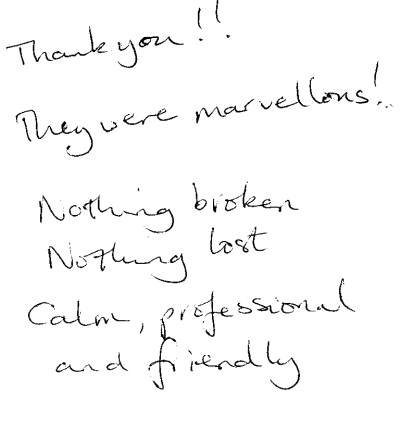 Thank you!!
They were marvellous!..
Nothing broken
Nothing lost
Calm, professional
and friendly